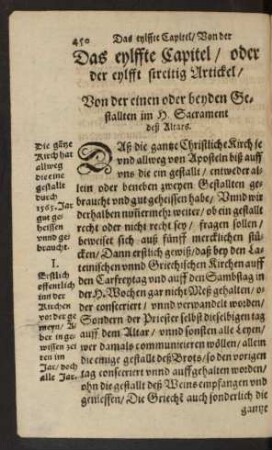 450 Das eylffte Capitel/ Von der
Das eylffte Capitel/ oder
der eylfft streitig Artickel/
Von der einen oder beyden Ge-
stallten im H. Sacrament
deß Altars.
Die gãtze
Kirch hat
allweg
die eine
gestallt
durch
1563. Jar
gut ge-
heissen
vnnd ge-
braucht.
I.
Erstlich
offentlich
inn der
Kirchen
vor der ge
meyn/ A-
ber in ge-
wissen zei
ten im
Jar/ doch
alle Jar.
DAß die gantze Christliche Kirch je
vnd allweg von Aposteln biß auff
vns die ein gestallt/ entweder al-
lein oder beneben zweyen Gestallten ge-
braucht vnd gut geheissen habe/ Vnnd wir
derhalben nun̄ermehr weiter/ ob ein gestallt
recht oder nicht recht sey/ fragen sollen/
beweiset sich auß fünff mercklichen stü-
cken/ Dann erstlich gewiß/ daß bey den La-
teinischen vnnd Griechischen Kirchen auff
den Carfreytag vnd auff den Sambstag in
der H. Wochen gar nicht Meß gehalten/ o-
der consecriert/ vnnd verwandelt worden/
Sondern der Priester selbst dieselbigen tag
auff dem Altar/ vnnd sonsten alle Leyen/
wer damals communicieren wöllen/ allein
die einige gestallt deß Brots/ so den vorigen
tag consecriert vnnd auffgehalten worden/
ohn die gestallt deß Weins empfangen vnd
geniessen/ Die Griechẽ auch sonderlich die
gantze